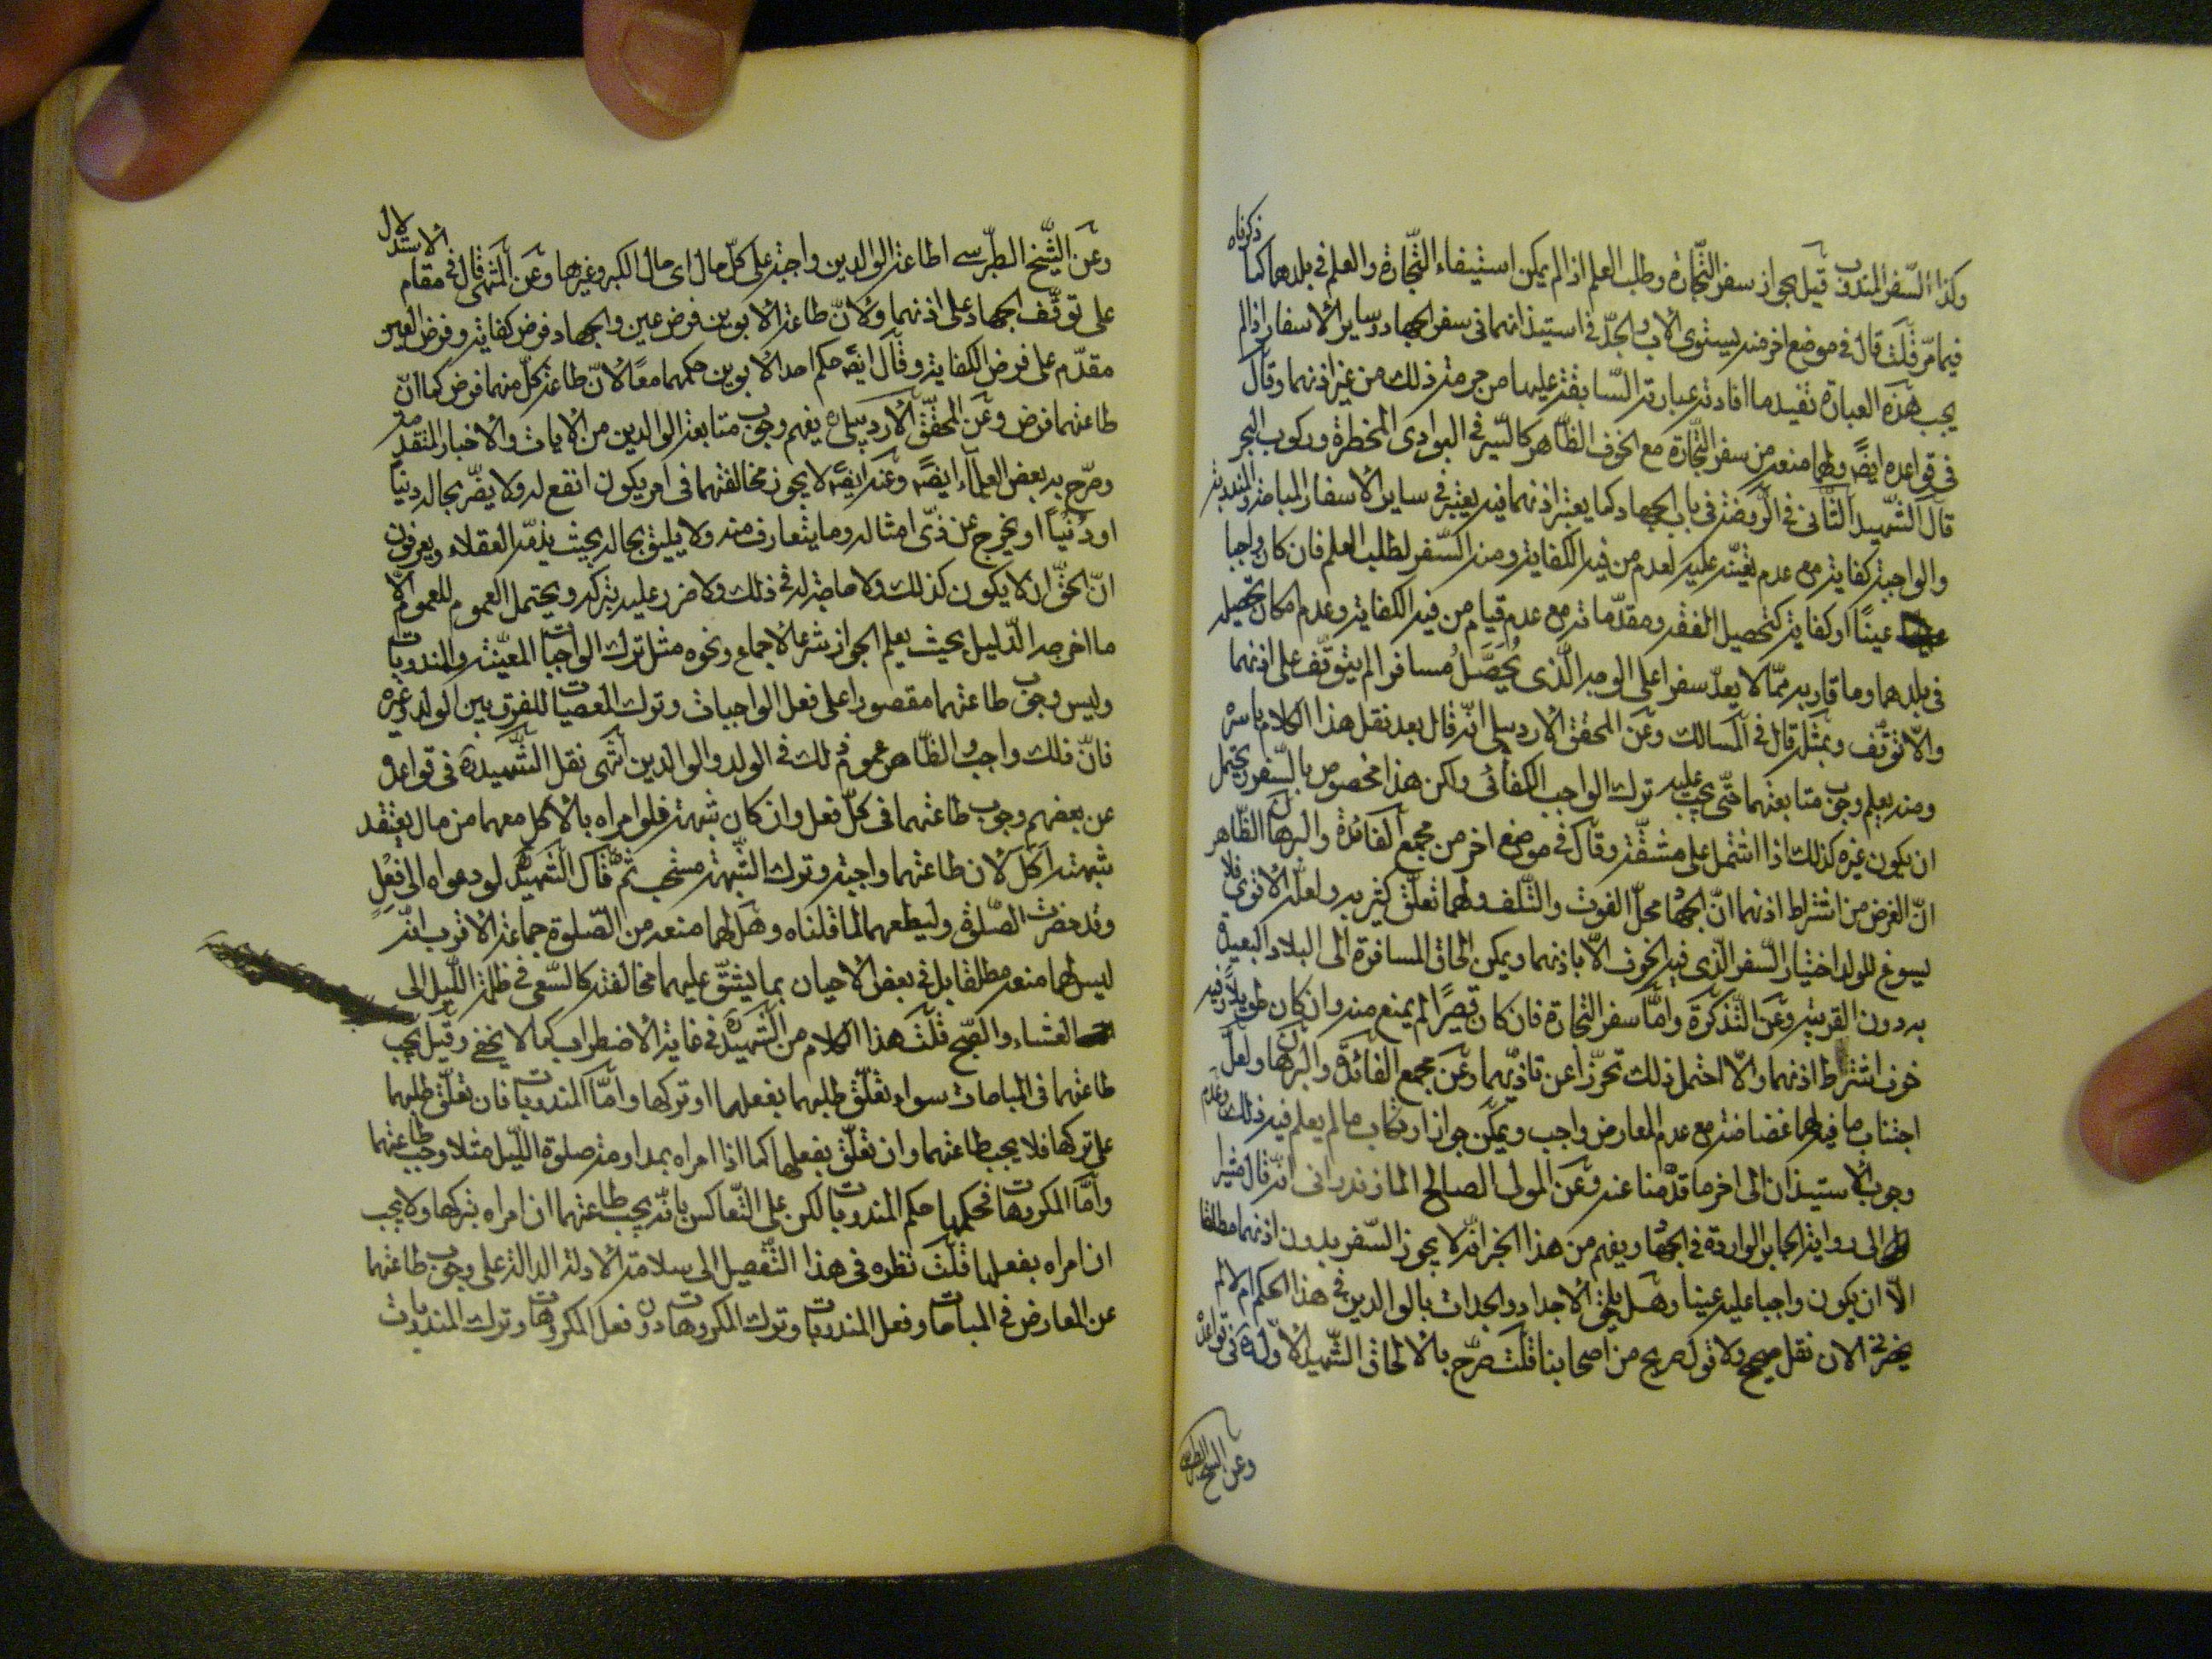 وكذا السّفر المندوب قيل بجواز سفر التّجارة وطلب العلم اذا لم يمكن استيفاء التّجارة والعلم في بلدهما كما ذكرناه
فيما مرّ قلت قال في موضع اخر منه يستوى الاب والجدّ في استيذانهما في سفر الجهاد وساير الاسفار اذا لم
يجب هذه العبارة تفيد ما افادته عبارته السّابقة عليها من حرمة ذلك من غير اذنهما وقال
في قواعده ايضًا ولهما منعه من سفر التّجارة مع الخوف الظّاهر كالسّير في البوادى المخطرة وركوب البحر
قال الشّهيد الثّانى في الرّوضة في باب الجهاد كما يعتبر اذنهما فيه يعتبر في ساير الاسفار المباحة والمندوبة
والواجبة كفاية مع عدم تعيّنه عليه لعدم من فيه الكفاية ومنه السّفر لطلب العلم فان كان واجبا
عينًا او كفاية كتحصيل الفقه ومقدّماته مع عدم قيام من فيه الكفاية وعدم امكان تحصيله
في بلدهما وما قاربه ممّا لا يعدّ سفرا على الوجه الّذى يُحَصَّلُ مُسافرا لم يتوقّف على اذنهما
والّا توقّف وبمثله قال في المسالك وعن المحقق الاردبيلى انّه قال بعد نقل هذا الكلام باسره
ومنه يعلم وجوب متابعتهما حتّى يجب عليه ترك الواجب الكفائى ولكن هذا مخصوص بالسّفر ويحتمل
ان يكون غيره كذلك اذا اشتمل على مشقّة وقال في موضع اخر من مجمع الفائدة والبرهان الظّاهر
انّ الغرض من اشتراط اذنهما انّ الجهاد محلّ الفوت والتّلف ولهما تعلّق كثير به ولعلّه الاقوى فلا
يسوغ للولد اختيار السّفر الّذى فيه الخوف الّا باذنهما ويمكن الحاق المسافرة الى البلاد البعيدة
به دون القريبة وعن التّذكرة وامّا سفر التجارة فان كان قصيرًا لم يمنع منه وان كان طويلًا وفيه
خوف اشترط اذنهما والّا احتمل ذلك تحرّزا عن تاذّيهما وعن مجمع الفائدة والبرهان ولعلّ
اجتناب ما فيه لهما غضاضة مع عدم المعارض واجب ويمكن جواز ارتكاب ما لم يعلم فيه ذلك وعدم
وجوب الاستيذان الى اخر ما قدّمنا عنه وعن المولى الصالح المازندرانى انّه قال مشيرا
الى رواية الجابر الواردة في الجهاد ويفهم من هذا الخبر انّه لا يجوز السّفر بدون اذنهما مطلقا
الّا ان يكون واجبا عليه عينا وهل يلحق الاجداد والجدات بالوالدين في هذا الحكم ام لا لم
يحضرنى الان نقل صحيح ولا قول صريح من اصحابنا قلت صرّح بالالحاق الشّهيد الاوّل في قواعده
وعن الشيخ الطبرسى
وعن الشّيخ الطبّرسى اطاعة الوالدين واجبة على كلّ حال اى حال الكبر وغيرها وعن المنتهى قال في مقام الاستدلال
على توقّف الجهاد على اذنهما ولانّ طاعة الابوين فرض عين والجهاد فرض كفاية وفرض العين
مقدّم على فرض الكفاية وقال ايضًه حكم احد الابوين حكمهما معًا لانّ طاعة كلّ منهما فرض كما انّ
طاعتهما فرض وعن المحقّق الاردبيلى يفهم وجوب متابعة الوالدين من الايات والاخبار المتقدّمة
وصرّح به بعض العلماء ايضًه وعنه ايضًه لا يجوز مخالفتهما في امر يكون انفع له ولا يضرّ بحاله دينًا
او دُنيًا او يخرج عن ذىّ امثاله وما يتعارف منه ولا يليق بحاله بحيث يذمّه العقلاء ويعرفون
انّ الحقّ ان لا يكون كذلك ولا حاجة له في ذلك ولا ضرر عليه بتركه ويحتمل العموم للعموم الّا
ما اخرجه الدّليل بحيث يعلم الجواز شرعا لاجماع ونحوه مثل ترك الواجبات المعيّنة والمندوبات
وليس وجوب طاعتهما مقصورا على فعل الواجبات وترك المعصيات للفرق بين الولد وغيره
فانّ ذلك واجب والظّاهر عموم ذلك في الولد والوالدين انتهى نقل الشّهيد في قواعده
عن بعضهم وجوب طاعتهما في كلّ فعل وان كان شبهة فلو امراه بالاكل معهما من مال يعتقد
شبهته اكل لان طاعتهما واجبة وترك الشّبهة مستحب ثمّ قال الشّهيد لو دعواه الى فعل
وقد حضرت الصّلوة وليطعهما لما قلناه وهل لهما منعه من الصّلوة جماعة الاقرب انّه
ليس لهما منعه مطلقا بل في بعض الاحيان بما يشقّ عليهما مخالفته كالسّعى في ظلمة اللّيل الى
العشاء والصّبح قلت هذا الكلام من الشّهيد في غاية الاضطراب كما لا يخفى وقيل يجب
طاعتهما في المباحات سواء تعلّق طلبهما بفعلهما او تركها وامّا المندوبات فان تعلّق طلبهما
على تركها فلا يجب طاعتهما وان تعلّق بفعلها كما اذا امراه بمداومة صلوة اللّيل مثلا وجب طاعتهما
وامّا المكروهات فحكمها حكم المندوبات لكن على التّعاكس بانّه يجب طاعتهما ان امراه بتركها ولا يجب
ان امراه بفعلها قلت نظره في هذا التّفصيل الى سلامة الادلة الدالة على وجوب طاعتهما
عن المعارض في المباحات وفعل المندوبات وترك المكروهات دون فعل المكروهات وترك المندوبات